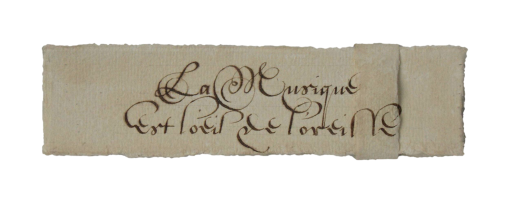 La Musique
est l'oeil de l'oreille